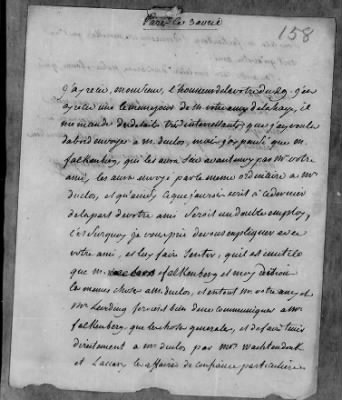 Paris ce 3 aout
158
j'ay recu, monsieur, l'honneur de la votre du 29, j'en
ay recu une le meme jour de votre amy de la haye, il
me mande des details tres interessants, que j'ay voulu
d'abord envoyer a m. duclos, mais j'ay pensé que m.
falkenberg, qui les aura scu avant moy par Mr votre
ami, les aura envoyé par le meme ordinaire a mr
duclos, et qu'ainsy ce que j'aurois ecrit a ce dernier
de la part de votre ami seroit un double employ,
c'est surquoy je vous prie de vous expliquer avec
votre ami, et luy faire sentir, qu'il est inutile
que m. falkenberg et moy disions
la meme chose a m. duclos, et en tout mr votre amy et
Mr feroient bien de ne communiquer a Mr
falkenberg, que les choses generales, et de faire tenir
directement a mr duclos par Mrs Wachtendonk
et les affaires de confiance particuliere